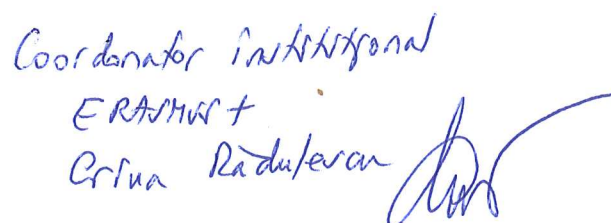 Coordonator instituțional
ERASMUS+
Crina Rădulescu